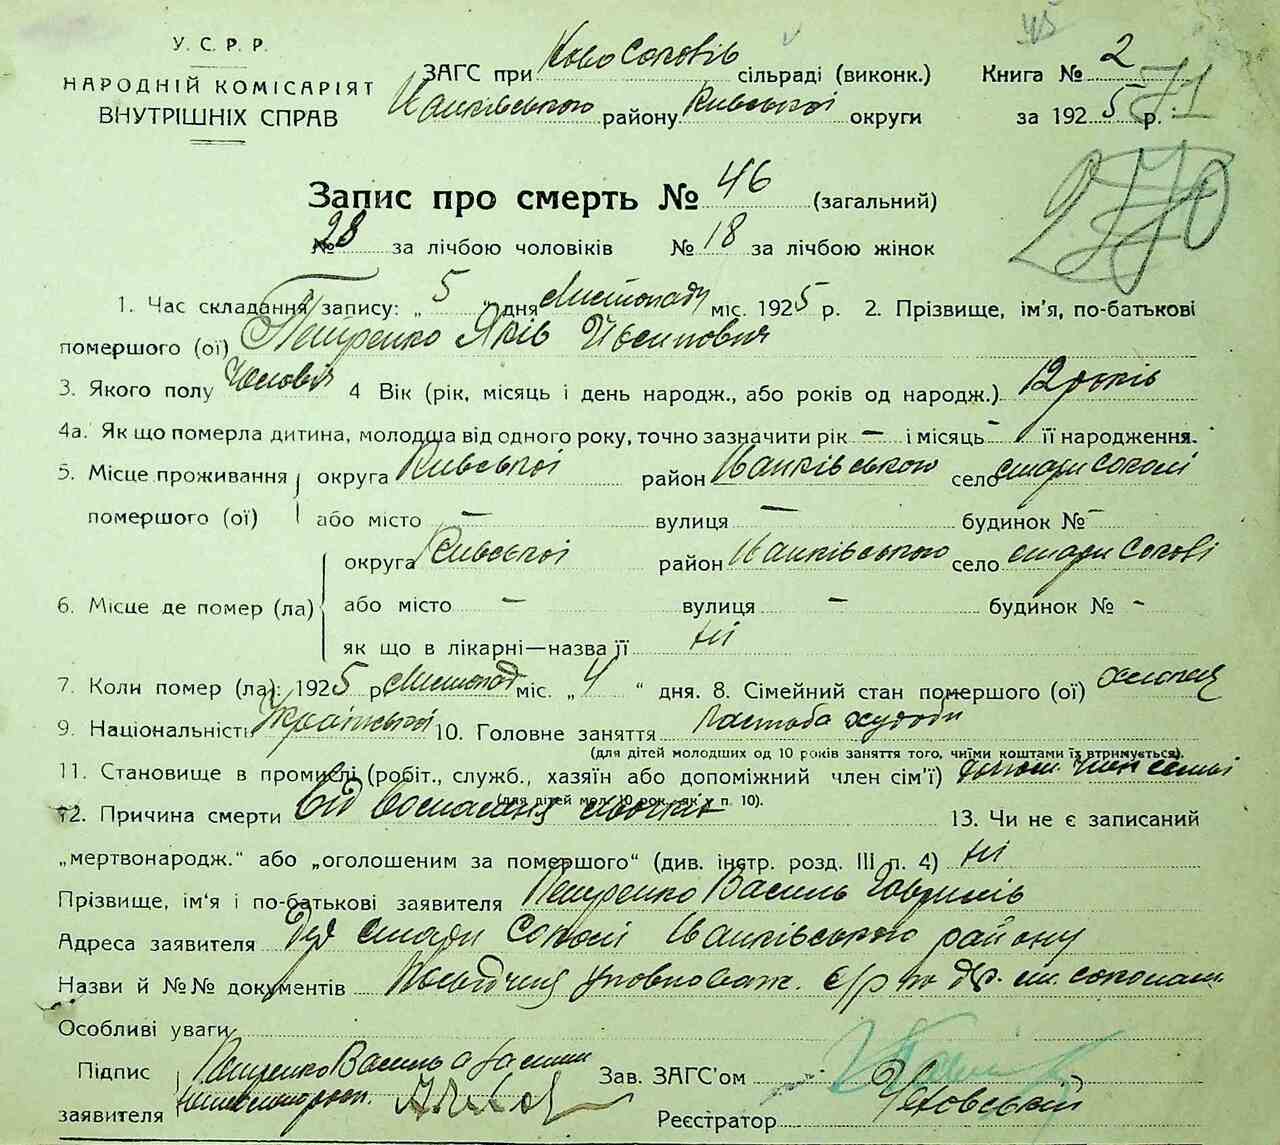 У.С.Р.Р.
НАРОДНІЙ КОМІСАРІЯТ
ВНУТРІШНІХ СПРАВ
ЗАГС при сільраді (виконк.)
Иванківського району Київської округи
Книга № 2
за 1925 р.
71
45
270
Запис про смерть № 46 (загальний)
№ 28 за лічбою чоловіків № 18 за лічбою жінок
1. Час складання запису: „ 5 “ дня Листопаду міс. 1925 р. 2. Прізвище, ім'я, по-батькові
помершого (ої) Петренко Яків
3. Якого полу Чоловік 4 Вік (рік, місяць і день народж., або років од народж.) 12 років
4а. Як що померла дитина, молодша від одного року, точно зазначити рік – і місяць – її народження.
5. Місце проживання округа Київської район Иванківського село стари соколі
помершого (ої) або місто – вулиця – будинок № –
округа Київської район Иванківського село стари Соколі
6. Місце де помер (ла) або місто – вулиця – будинок № –
як що в лікарні—назва її ні
7. Коли помер (ла): 1925 р. Листопад міс. „ 4 “ дня. 8. Сімейний стан помершого (ої)
9. Національність Української 10. Головне заняття Пастьба худоби
(для дітей молодших од 10 років заняття того, чиїми коштами їх втримується).
11. Становище в промислі (робіт., служб., хазяїн або допоміжний член сім'ї) допом. член семьі
(для дітей мол. 10 рок., як у п. 10).
12. Причина смерти Від 13. Чи не є записаний
„мертвонародж.“ або „оголошеним за помершого“ (див. інстр. розд. III п. 4) ні
Прізвище, ім'я і по-батькові заявителя Петренко Василь
Адреса заявителя стари Соколі Иванківського району
Назви й №№ документів
Особливі уваги
Підпис Петренко Василь Зав. ЗАГС'ом
заявителя Реєстратор